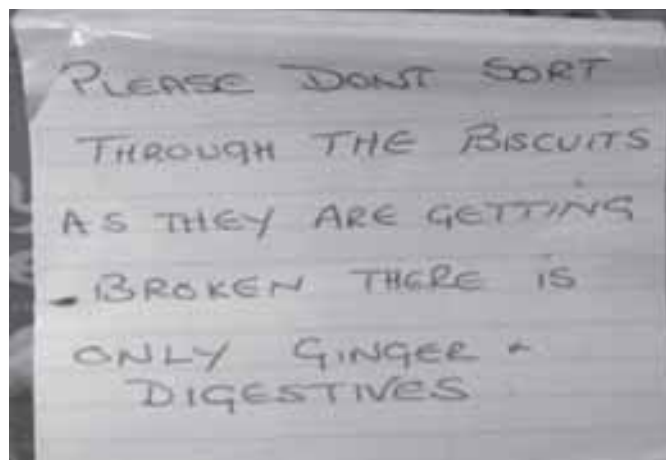 PLEASE DONT SORT
THROUGH THE BISCUITS
AS THEY ARE GETTING
BROKEN THERE IS
ONLY GINGER &
DIGESTIVES